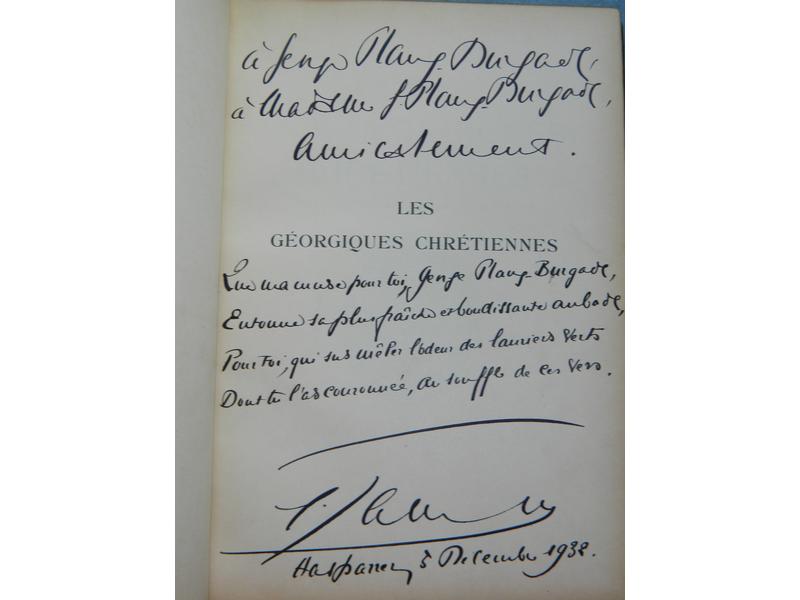 à Serge Planq-Burgade,
à Madame S Planq-Burgade,
Amicalement.
LES
GÉORGIQUES CHRÉTIENNES
Que ma muse pour toi, Serge Planq Burgade,
Entonne sa plus fraîche et bondissante aubade,
Pour toi, qui sus mêler l'odeur des lauriers verts
Dont tu l'as couronnée, au souffle de ces vers.
F. Jammes
Hasparren, 5 Décembre 1932.